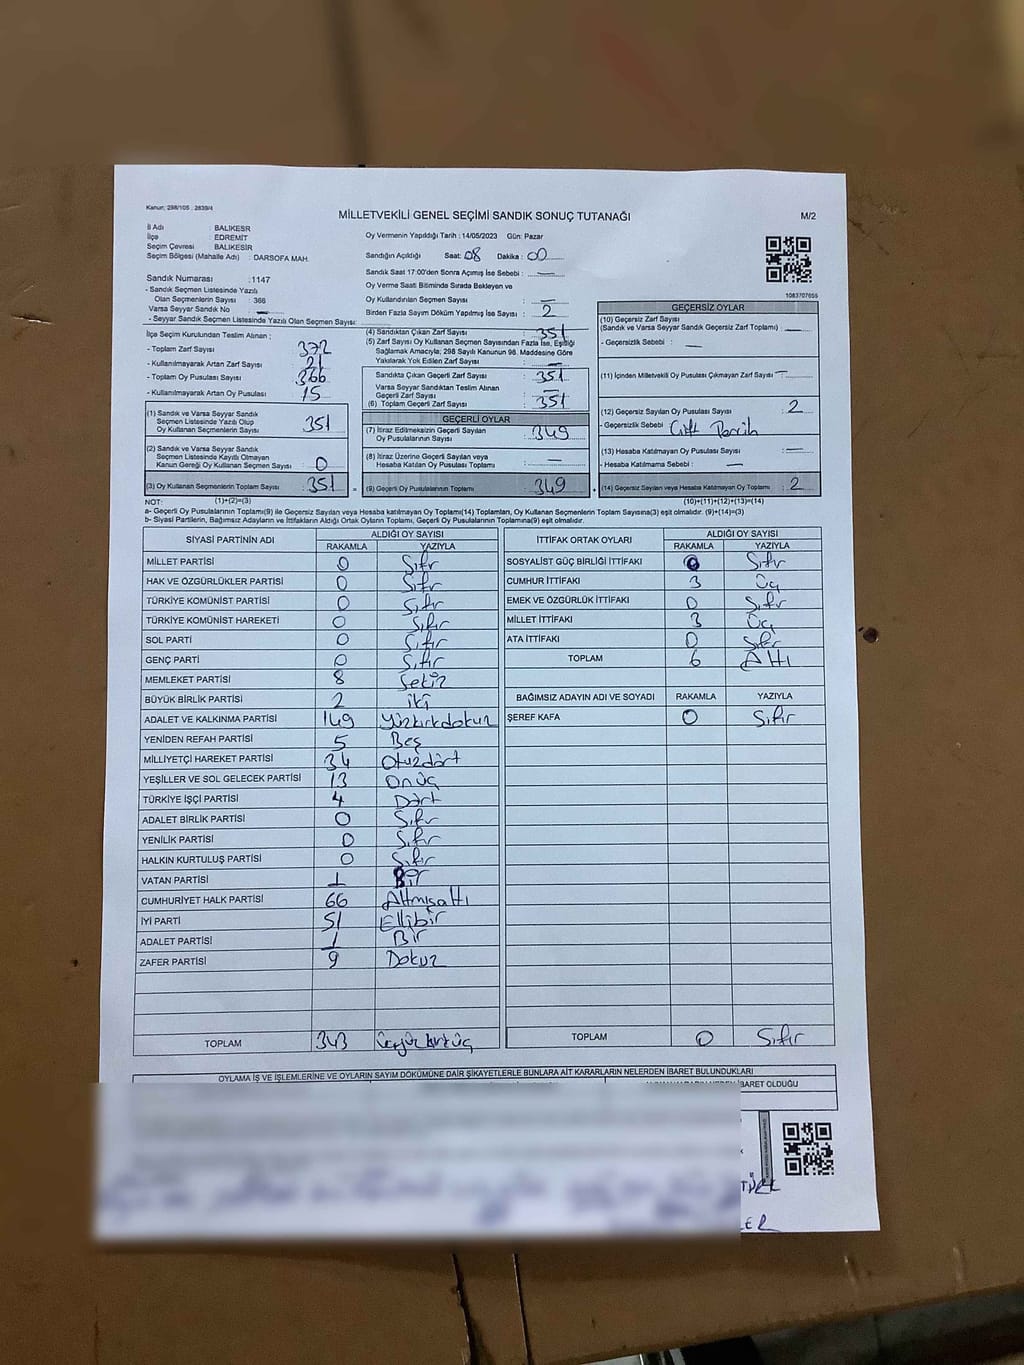 Kanun: 298/105 , 2839/4
MİLLETVEKİLİ GENEL SEÇİMİ SANDIK SONUÇ TUTANAĞI
M/2
İl Adı BALIKESR
İlçe EDREMIT
Seçim Çevresi BALIKESİR
Seçim Bölgesi (Mahalle Adı) : DARSOFA MAH.
Oy Vermenin Yapıldığı Tarih : 14/05/2023 Gün: Pazar
Sandığın Açıldığı Saat: 08 Dakika : 00
Sandık Saat 17:00'den Sonra Açımış İse Sebebi : —
Oy Verme Saati Bitiminde Sırada Bekleyen ve
Oy Kullandırılan Seçmen Sayısı : —
Birden Fazla Sayım Döküm Yapılmış İse Sayısı : 2
1083707655
Sandık Numarası : 1147
- Sandık Seçmen Listesinde Yazılı
Olan Seçmenlerin Sayısı : 366
Varsa Seyyar Sandık No —
- Seyyar Sandık Seçmen Listesinde Yazılı Olan Seçmen Sayısı:
İlçe Seçim Kurulundan Teslim Alınan :
- Toplam Zarf Sayısı 372
- Kullanılmayarak Artan Zarf Sayısı 21
- Toplam Oy Pusulası Sayısı 366
- Kullanılmayarak Artan Oy Pusulası 15
(1) Sandık ve Varsa Seyyar Sandık
Seçmen Listesinde Yazılı Olup
Oy Kullanan Seçmenlerin Sayısı 351
(2) Sandık ve Varsa Seyyar Sandık
Seçmen Listesinde Kayıtlı Olmayan
Kanun Gereği Oy Kullanan Seçmen Sayısı : 0
(3) Oy Kullanan Seçmenlerin Toplam Sayısı : 351
(1)+(2)=(3)
(4) Sandıktan Çıkan Zarf Sayısı : 351
(5) Zarf Sayısı Oy Kullanan Seçmen Sayısından Fazla İse, Eşitliği
Sağlamak Amacıyla; 298 Sayılı Kanunun 98. Maddesine Göre
Yakılarak Yok Edilen Zarf Sayısı : —
Sandıkta Çıkan Geçerli Zarf Sayısı : 351
Varsa Seyyar Sandıktan Teslim Alınan
Geçerli Zarf Sayısı : —
(6) Toplam Geçerli Zarf Sayısı : 351
GEÇERLİ OYLAR
(7) İtiraz Edilmeksizin Geçerli Sayılan
Oy Pusulalarının Sayısı : 349
(8) İtiraz Üzerine Geçerli Sayılan veya
Hesaba Katılan Oy Pusulası Toplamı : —
= (9) Geçerli Oy Pusulalarının Toplamı : 349
GEÇERSİZ OYLAR
(10) Geçersiz Zarf Sayısı
(Sandık ve Varsa Seyyar Sandık Geçersiz Zarf Toplamı) : —
- Geçersizlik Sebebi : —
(11) İçinden Milletvekili Oy Pusulası Çıkmayan Zarf Sayısı : —
(12) Geçersiz Sayılan Oy Pusulası Sayısı : 2
- Geçersizlik Sebebi : Çift Tercih
(13) Hesaba Katılmayan Oy Pusulası Sayısı : —
- Hesaba Katılmama Sebebi : —
+ (14) Geçersiz Sayılan veya Hesaba Katılmayan Oy Toplamı : 2
(10)+(11)+(12)+(13)=(14)
NOT:
a- Geçerli Oy Pusulalarının Toplamı(9) ile Geçersiz Sayılan veya Hesaba katılmayan Oy Toplamı(14) Toplamları, Oy Kullanan Seçmenlerin Toplam Sayısına(3) eşit olmalıdır. (9)+(14)=(3)
b- Siyasi Partilerin, Bağımsız Adayların ve İttifakların Aldığı Ortak Oyların Toplamı, Geçerli Oy Pusulalarının Toplamına(9) eşit olmalıdır.
SİYASİ PARTİNİN ADI ALDIĞI OY SAYISI
RAKAMLA YAZIYLA
MİLLET PARTİSİ 0 Sıfır
HAK VE ÖZGÜRLÜKLER PARTİSİ 0 Sıfır
TÜRKİYE KOMÜNİST PARTİSİ 0 Sıfır
TÜRKİYE KOMÜNİST HAREKETİ 0 Sıfır
SOL PARTİ 0 Sıfır
GENÇ PARTİ 0 Sıfır
MEMLEKET PARTİSİ 8 Sekiz
BÜYÜK BİRLİK PARTİSİ 2 iki
ADALET VE KALKINMA PARTİSİ 149 Yüzkırkdokuz
YENİDEN REFAH PARTİSİ 5 Beş
MİLLİYETÇİ HAREKET PARTİSİ 34 Otuzdört
YEŞİLLER VE SOL GELECEK PARTİSİ 13 Onüç
TÜRKİYE İŞÇİ PARTİSİ 4 Dört
ADALET BİRLİK PARTİSİ 0 Sıfır
YENİLİK PARTİSİ 0 Sıfır
HALKIN KURTULUŞ PARTİSİ 0 Sıfır
VATAN PARTİSİ 1 Bir
CUMHURİYET HALK PARTİSİ 66 Altmışaltı
İYİ PARTİ 51 Ellibir
ADALET PARTİSİ 1 Bir
ZAFER PARTİSİ 9 Dokuz
TOPLAM 343 üçyüzkırküç
İTTİFAK ORTAK OYLARI ALDIĞI OY SAYISI
RAKAMLA YAZIYLA
SOSYALİST GÜÇ BİRLİĞİ İTTİFAKI 0 Sıfır
CUMHUR İTTİFAKI 3 Üç
EMEK VE ÖZGÜRLÜK İTTİFAKI 0 Sıfır
MİLLET İTTİFAKI 3 Üç
ATA İTTİFAKI 0 Sıfır
TOPLAM 6 Altı
BAĞIMSIZ ADAYIN ADI VE SOYADI RAKAMLA YAZIYLA
ŞEREF KAFA 0 Sıfır
TOPLAM 0 Sıfır
OYLAMA İŞ VE İŞLEMLERİNE VE OYLARIN SAYIM DÖKÜMÜNE DAİR ŞİKAYETLERLE BUNLARA AİT KARARLARIN NELERDEN İBARET BULUNDUKLARI
İBARET OLDUĞU